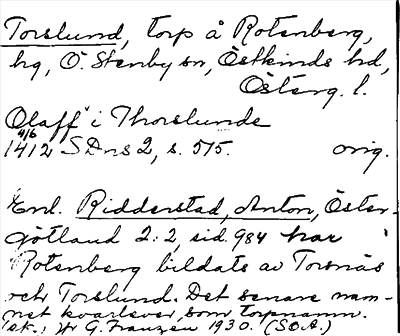 Torslund, torp å Rotenberg,
hg, Ö. Stenby sn, Östkinds hd,
Österg. l.
Olaff i Thorslunde
4/6
1412 SDns 2, s. 515. orig.
Enl. Ridderstad, Anton, Öster-
götland 2:2, sid. 984 har
Rotenberg bildats av Torsnäs
och Torslund. Det senare nam-
net kvarlever som torpnamn.
Tek., jfr G. Franzén 1930. (SOA.)